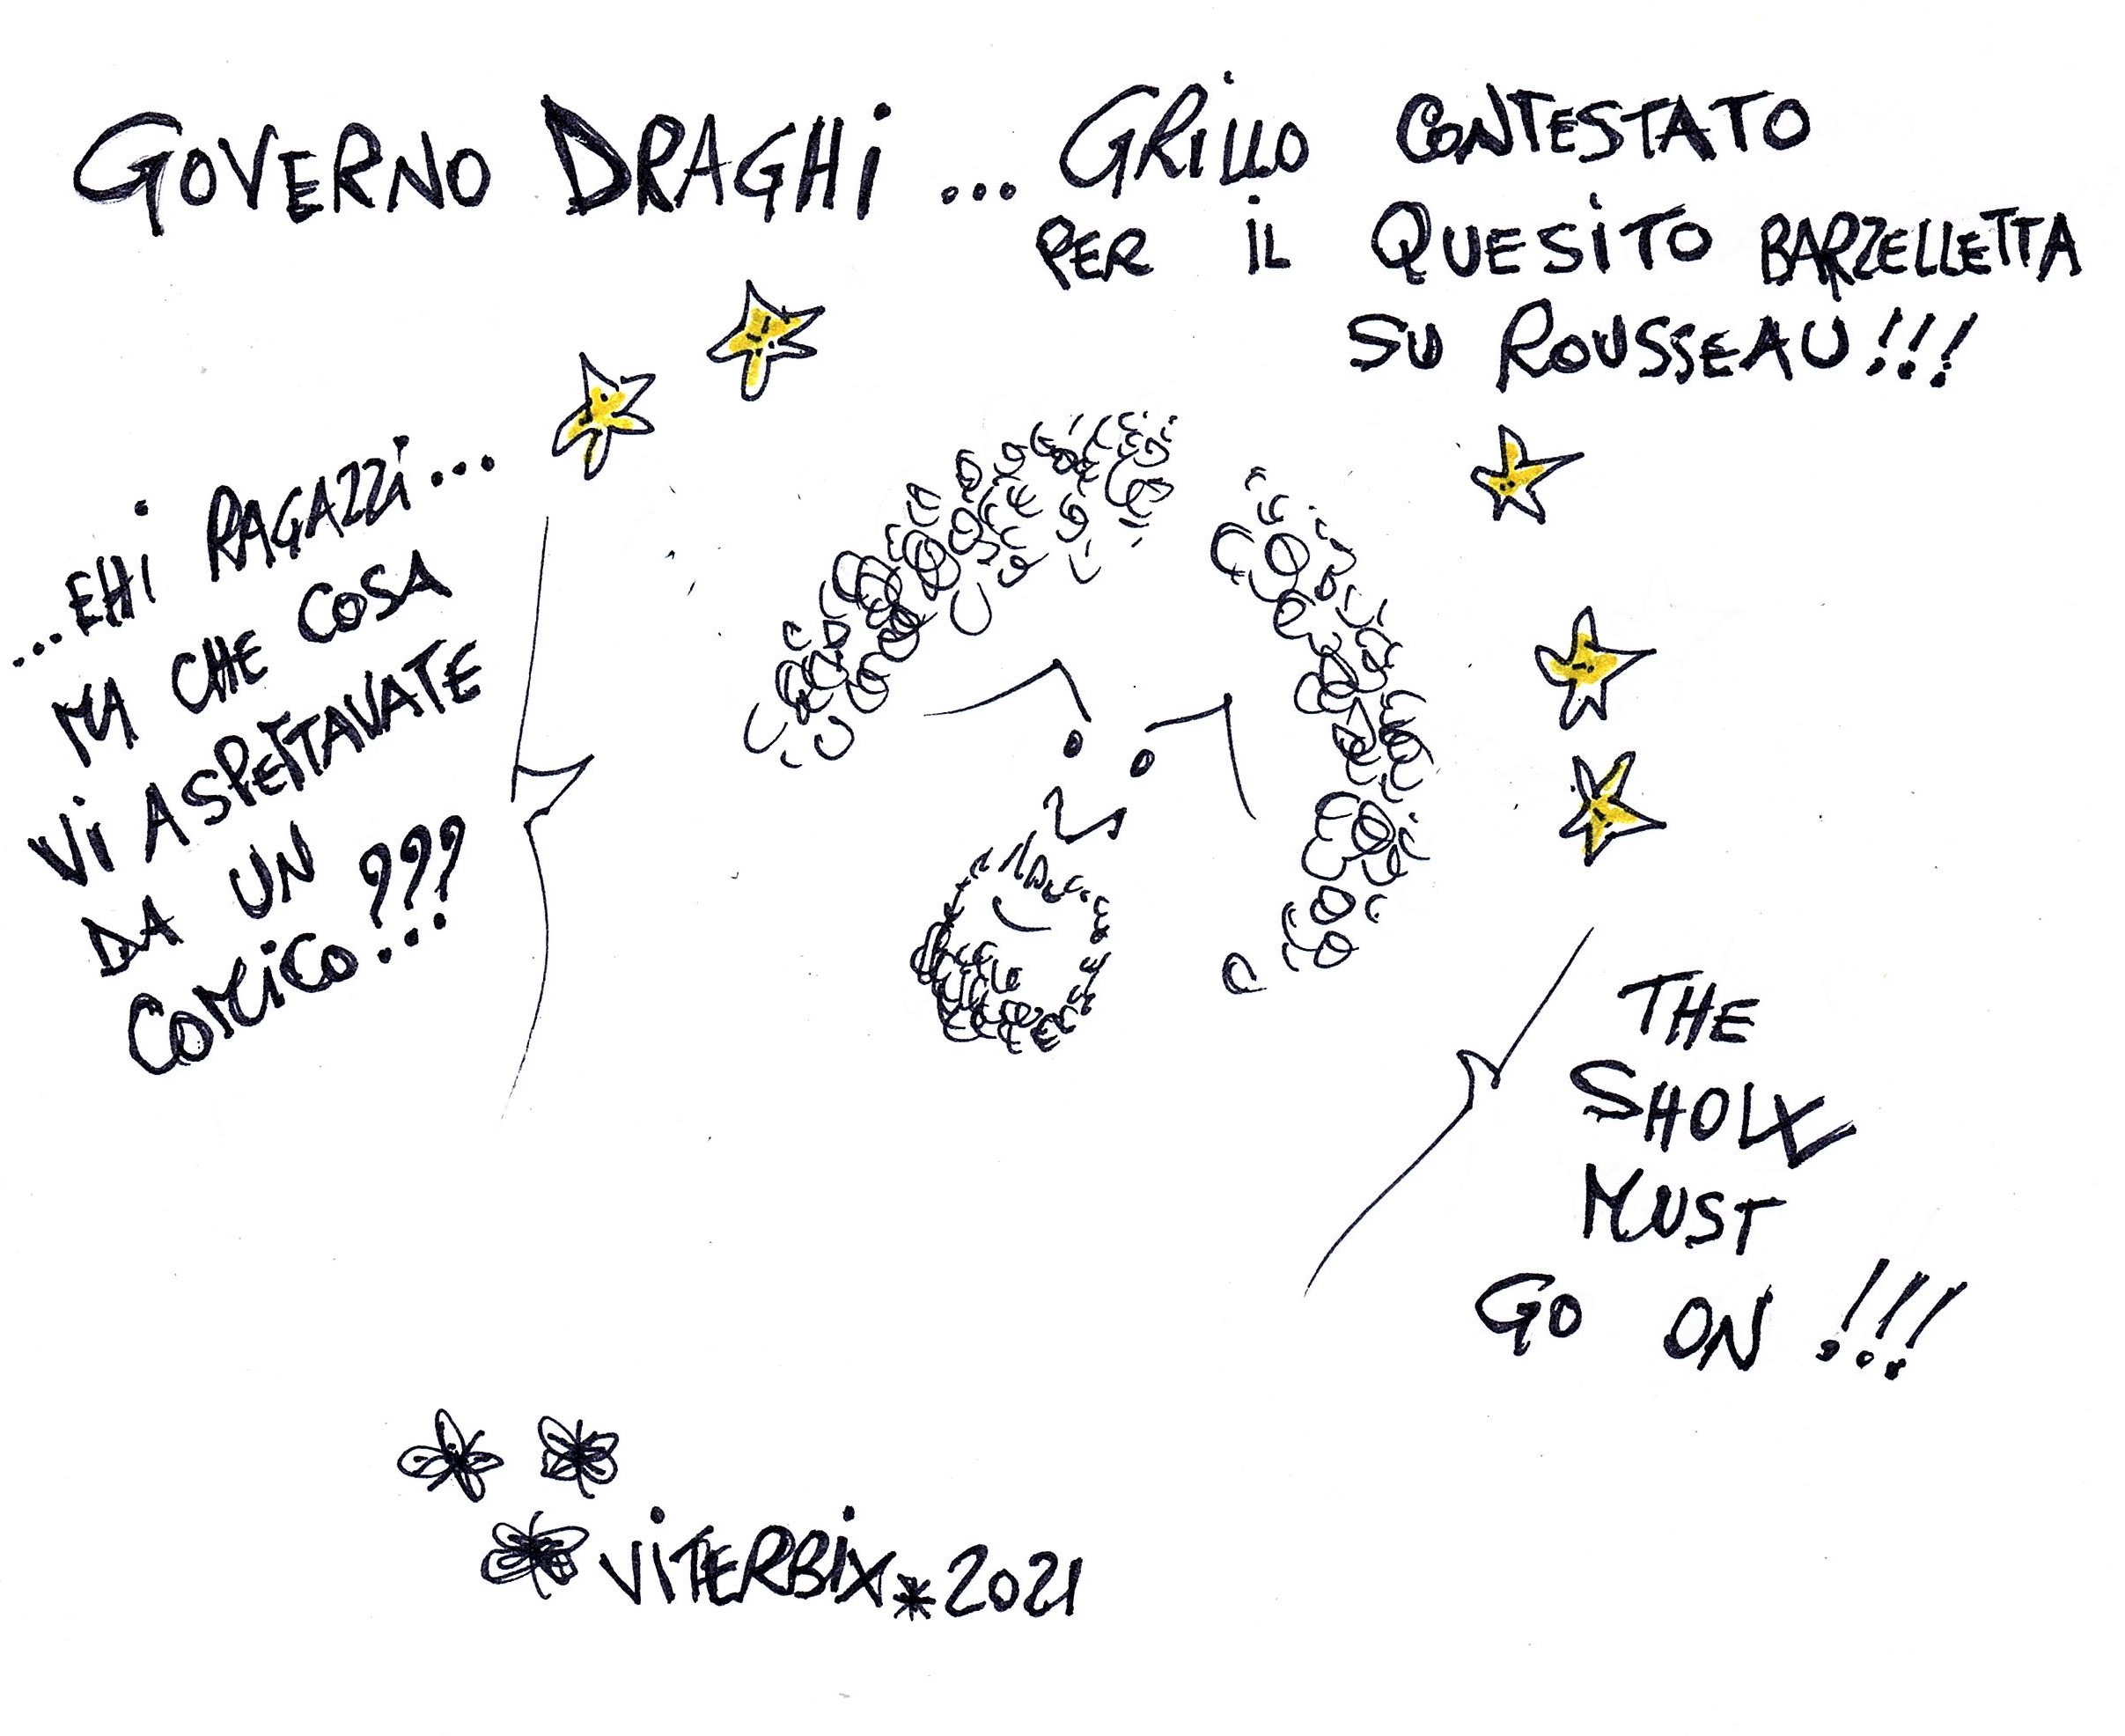 GOVERNO DRAGHI ... GRILLO CONTESTATO
PER IL QUESITO BARZELLETTA
SU ROUSSEAU!!!
...EHI RAGAZZI...
MA CHE COSA
VI ASPETTAVATE
DA UN
COMICO???
THE
SHOW
MUST
GO ON!!!
VITERBIX*2021